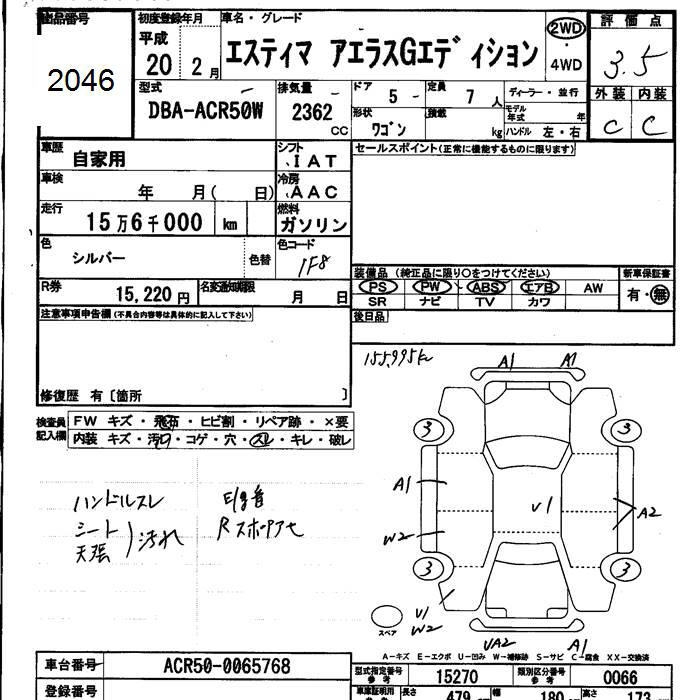 出品番号
2046
初度登録年月
平成
20
2月
車名・グレード
エスティマ アエラスGエディション
2WD
4WD
評価点
3.5
外装 内装
C C
型式
DBA-ACR50W
排気量
2362
CC
ドア
5 -
定員
7 人
形状
ワゴン
積載
kg
ディーラー・並行
モデル年式
年
ハンドル 左・右
車歴
自家用
シフト
IAT
セールスポイント(正常に機能するものに限ります)
車検
年 月( 日)
冷房
AAC
走行
15万6千000 km
燃料
ガソリン
色
シルバー
色替
色コード
1F8
R券
15,220円
名変通知期限
月 日
装備品 (純正品に限り○をつけてください)
新車保証書
PS PW ABS エアB AW
有・無
SR ナビ TV カワ
注意事項申告欄(不具合内容等は具体的に記入して下さい)
後日品
修復歴 有〔箇所 〕
155,995km
A1 A1
検査員記入欄
FW キズ・飛石・ヒビ割・リペア跡・×要
内装 キズ・汚れ・コゲ・穴・スレ・キレ・破レ
3 3
A1
V1
A2
W2
3 3
ハンドルスレ
シート
天張
汚れ
E/g音
Rスポイラセ
スペア
V1
W2
UA2
A1
A-キズ E-エクボ U-凹み W-補修跡 S-サビ C-腐食 XX-交換済
車台番号
ACR50-0065768
型式指定番号
参考
15270
類別区分番号
参考
0066
登録番号
車庫証明用
参考
長さ
479 cm
幅
180 cm
高さ
173